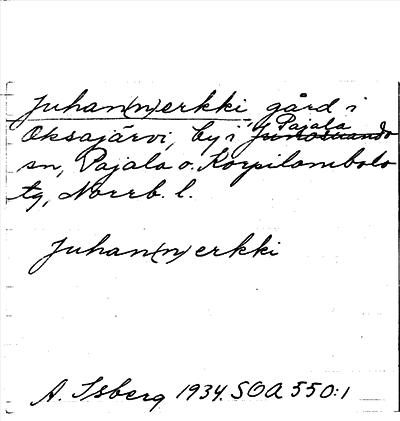 Juhan(n)erkki, gård i
Oksajärvi, by i Pajala Junosuando
sn, Pajala o. Korpilombolo
tg, Norrb. l.
Juhan(n)erkki
A. Isberg 1934. SOA 550:1